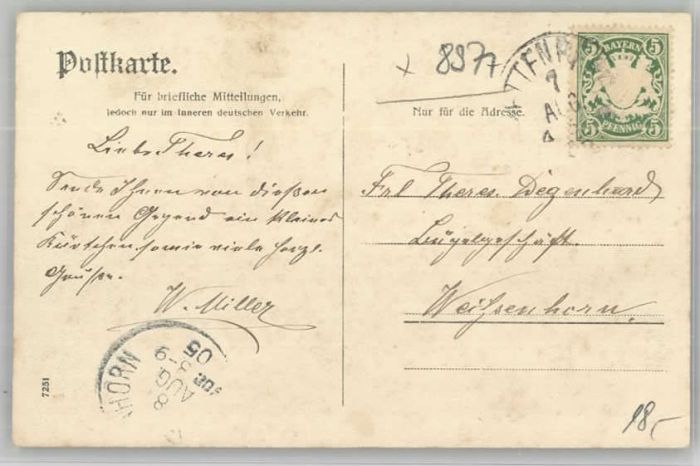 Postkarte.
Für briefliche Mitteilungen,
jedoch nur im inneren deutschen Verkehr.
Liebe Theres!
Sende Ihnen von dießer
schönen Gegend ein kleines
Kärtchen sowie viele herzl.
Grüße.
W. Miller
HORN
8
AUG
8-9
05
7251
x 8977
Nur für die Adresse.
7
AUG
5 BAYERN 5
5 PFENNIG 5
Frl Theres. Degenhard
Bügelgeschäft.
Weißenhorn.
18,-